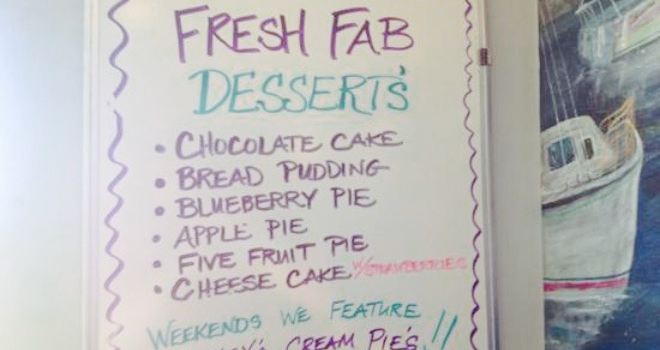 FRESH FAB
DESSERT'S
• CHOCOLATE CAKE
• BREAD PUDDING
• BLUEBERRY PIE
• APPLE PIE
• FIVE FRUIT PIE
• CHEESE CAKE W/STRAWBERRIES
WEEKENDS WE FEATURE
CREAM PIE'S !!